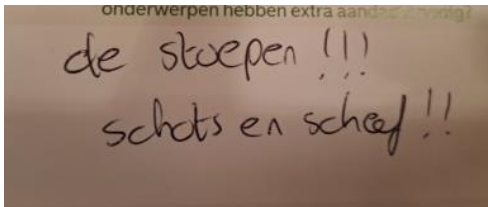 onderwerpen hebben extra aandacht nodig?
de stoepen !!!
schots en scheef !!